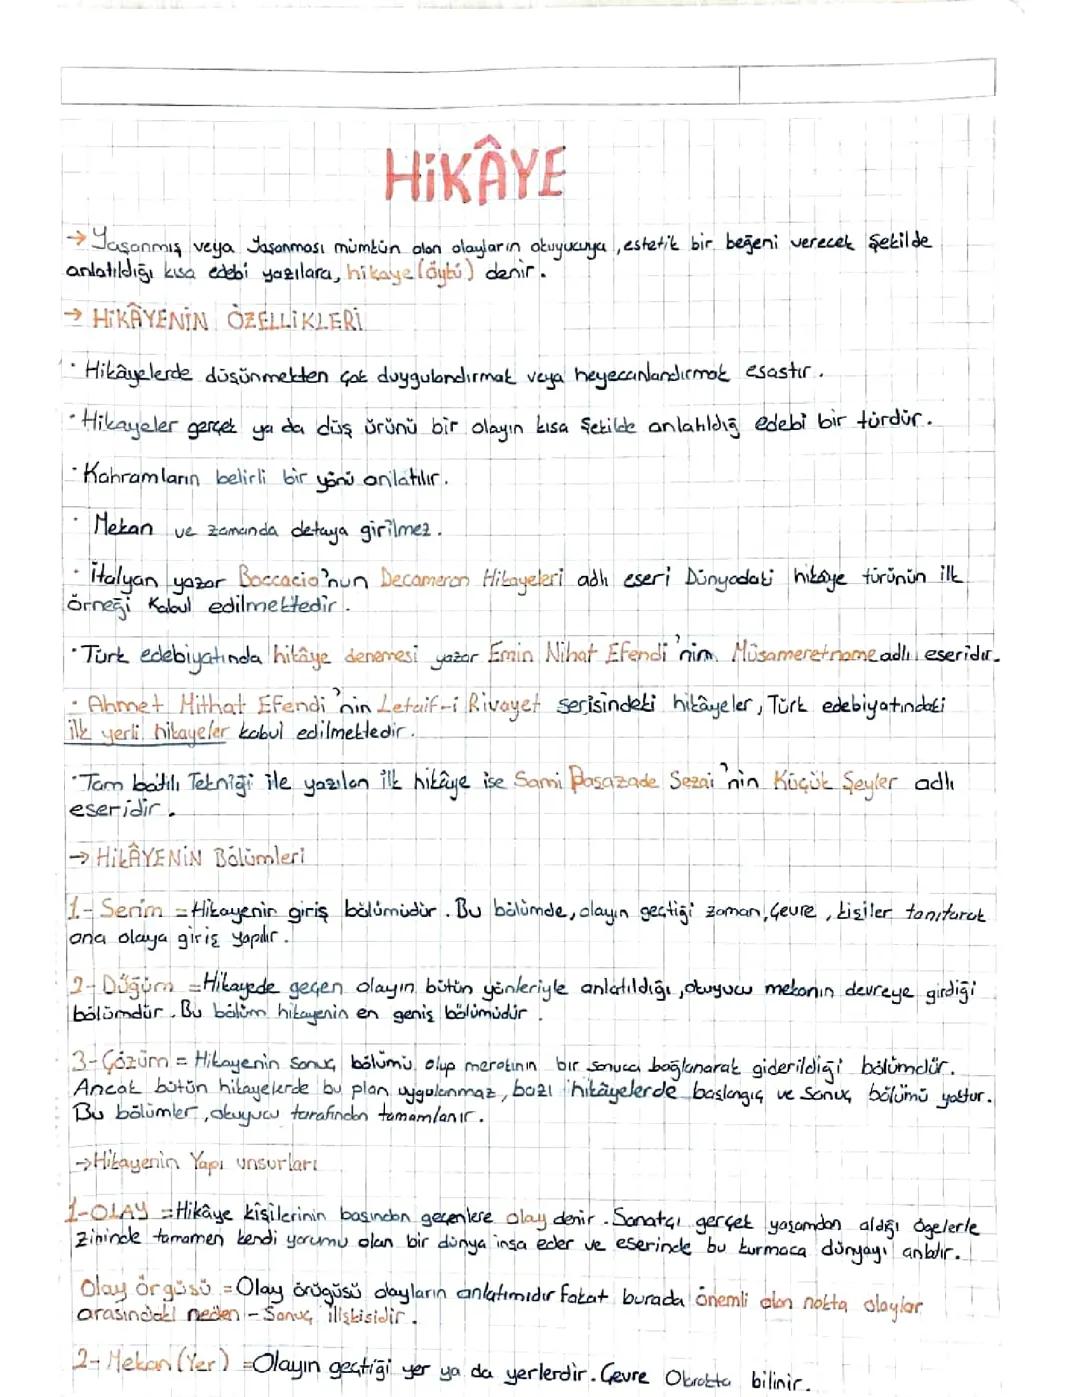 HİKÂYE
→ Yaşanmış veya Yaşanması mümkün olan olayların okuyucuya, estetik bir beğeni verecek şekilde
anlatıldığı kısa edebi yazılara, hikaye (öykü) denir.
→ HİKÂYENİN ÖZELLİKLERİ
· Hikâyelerde düşünmekten çok duygulandırmak veya heyecanlandırmak esastır.
· Hikayeler gerçek ya da düş ürünü bir olayın kısa şekilde anlatıldığ edebi bir türdür.
· Kahramların belirli bir yönü anlatılır.
· Mekan ve zamanda detaya girilmez.
· İtalyan yazar Boccacio'nun Decameron Hikayeleri adlı eseri Dünyadaki hikâye türünün ilk
örneği Kabul edilmektedir.
· Türk edebiyatında hikâye denemesi yazar Emin Nihat Efendi'nin Müsameretname adlı eseridir.
· Ahmet Mithat Efendi'nin Letaif-i Rivayet serisindeki hikâyeler, Türk edebiyatındaki
ilk yerli hikayeler kabul edilmektedir.
· Tam batılı Tekniği ile yazılan ilk hikâye ise Sami Paşazade Sezai'nin Küçük Şeyler adlı
eseridir.
→ HİKÂYENİN Bölümleri
1- Serim = Hikayenin giriş bölümüdür. Bu bölümde, olayın geçtiği zaman, çevre, kişiler tanıtarak
ana olaya giriş yapılır.
2- Düğüm = Hikayede geçen olayın bütün yönleriyle anlatıldığı, okuyucu mekanın devreye girdiği
bölümdür. Bu bölüm hikayenin en geniş bölümüdür.
3- Çözüm = Hikayenin sonuç bölümü olup merakının bir sonuca bağlanarak giderildiği bölümdür.
Ancak bütün hikayelerde bu plan uygulanmaz, bazı hikâyelerde başlangıç ve sonuç bölümü yoktur.
Bu bölümler, okuyucu tarafından tamamlanır.
→ Hikayenin Yapı unsurları
1- OLAY = Hikâye kişilerinin başından geçenlere olay denir. Sanatçı gerçek yaşamdan aldığı ögelerle
zihinde tamamen kendi yorumu olan bir dünya inşa eder ve eserinde bu kurmaca dünyayı anlatır.
Olay örgüsü = Olay örügüsü olayların anlatımıdır fakat burada önemli olan nokta olaylar
arasındaki neden - Sonuç ilişkisidir.
2- Mekan (Yer) = Olayın geçtiği yer ya da yerlerdir. Çevre Olarakta bilinir.